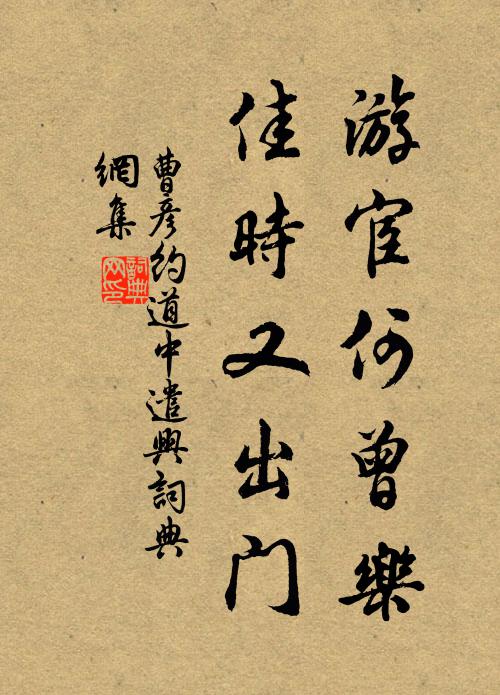 游宦何曾樂
佳時又出門
曹彥約道中遣興詞典
網集
詞典
网印